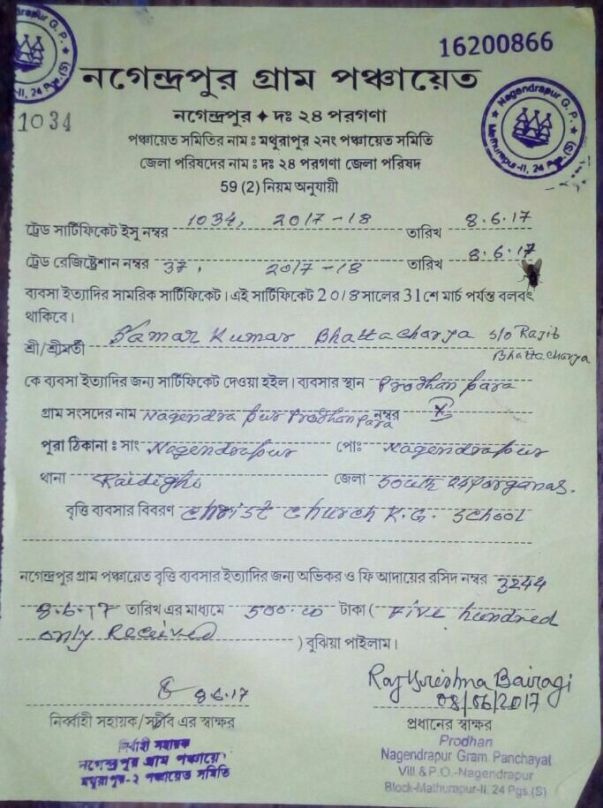 16200866
Nagendrapur G.P.
Mathurapur-II, 24 Pgs.(S)
নগেন্দ্রপুর গ্রাম পঞ্চায়েত
1034
নগেন্দ্রপুর ✦ দঃ ২৪ পরগণা
পঞ্চায়েত সমিতির নাম : মথুরাপুর ২নং পঞ্চায়েত সমিতি
জেলা পরিষদের নাম : দঃ ২৪ পরগণা জেলা পরিষদ
59 (2) নিয়ম অনুযায়ী
ট্রেড সার্টিফিকেট ইসু নম্বর 1034, 2017-18 তারিখ 8.6.17
ট্রেড রেজিষ্ট্রেশান নম্বর 37, 2017-18 তারিখ 8.6.17
ব্যবসা ইত্যাদির সামরিক সার্টিফিকেট। এই সার্টিফিকেট 2018 সালের 31 শে মার্চ পর্যন্ত বলবৎ
থাকিবে।
শ্রী/শ্রীমতী Samar Kumar Bhattacharya s/o Rajib
Bhattacharya
কে ব্যবসা ইত্যাদির জন্য সার্টিফিকেট দেওয়া হইল। ব্যবসার স্থান Prodhan para
গ্রাম সংসদের নাম Nagendra pur Prodhan para নম্বর
পুরা ঠিকানা : সাং Nagendrapur পোঃ Nagendrapur
থানা Raidighi জেলা South 24 Parganas.
বৃত্তি ব্যবসার বিবরণ Christ Church K.G. School
নগেন্দ্রপুর গ্রাম পঞ্চায়েত বৃত্তি ব্যবসার ইত্যাদির জন্য অভিকর ও ফি আদায়ের রসিদ নম্বর 3244
8.6.17 তারিখ এর মাধ্যমে 500.00 টাকা ( Five hundred
only Received ) বুঝিয়া পাইলাম।
8.6.17
Raj Krishna Bairagi
08/06/2017
নির্ব্বাহী সহায়ক/সচীব এর স্বাক্ষর
প্রধানের স্বাক্ষর
নির্বাহী সহায়ক
নগেন্দ্রপুর গ্রাম পঞ্চায়েত
মথুরাপুর-২ পঞ্চায়েত সমিতি
Prodhan
Nagendrapur Gram Panchayat
Vill & P.O.-Nagendrapur
Block-Mathurapur-II, 24 Pgs.(S)